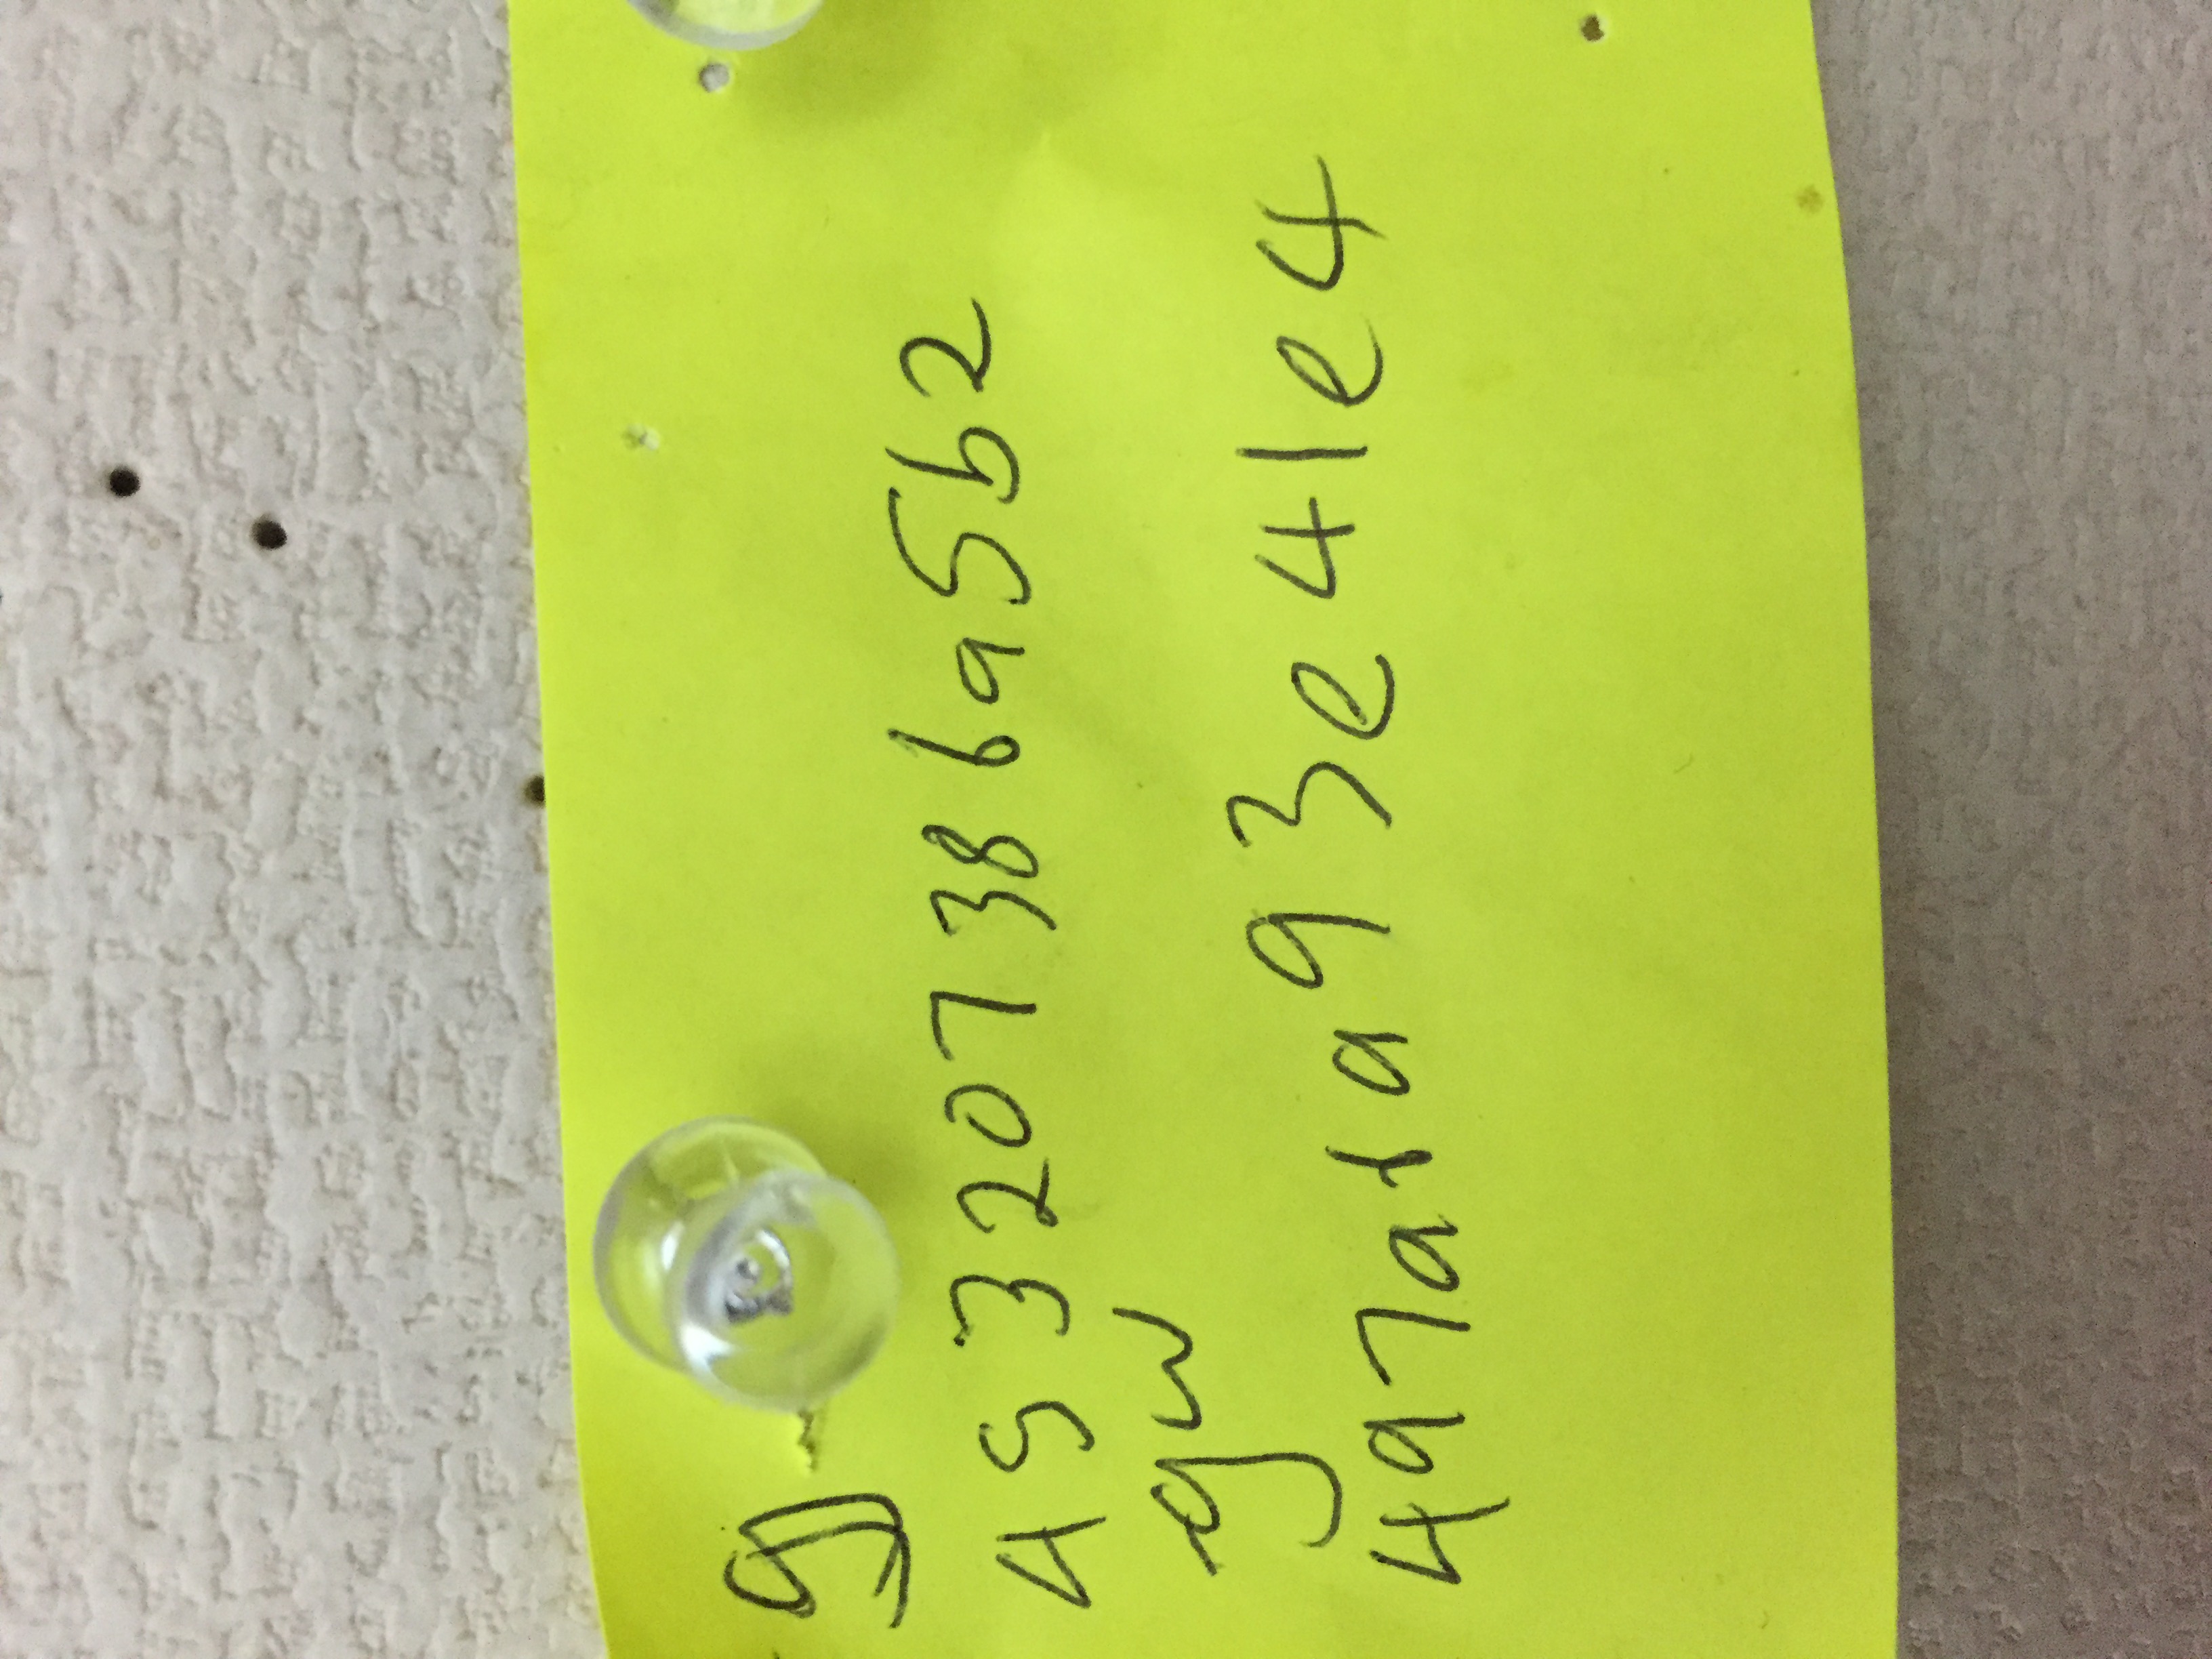 g
453207386a5b2
gw
497ara93e41e4